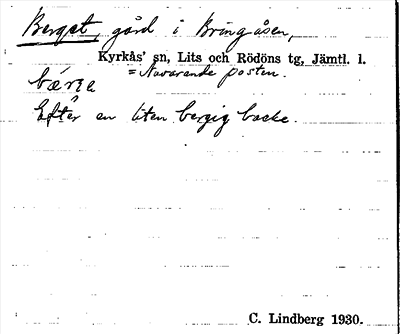 Berget, gård i Bringåsen,
Kyrkås' sn, Lits och Rödöns tg, Jämtl. l.
= Nuvarande posten.
Efter en liten bergig backe.
C. Lindberg 1930.